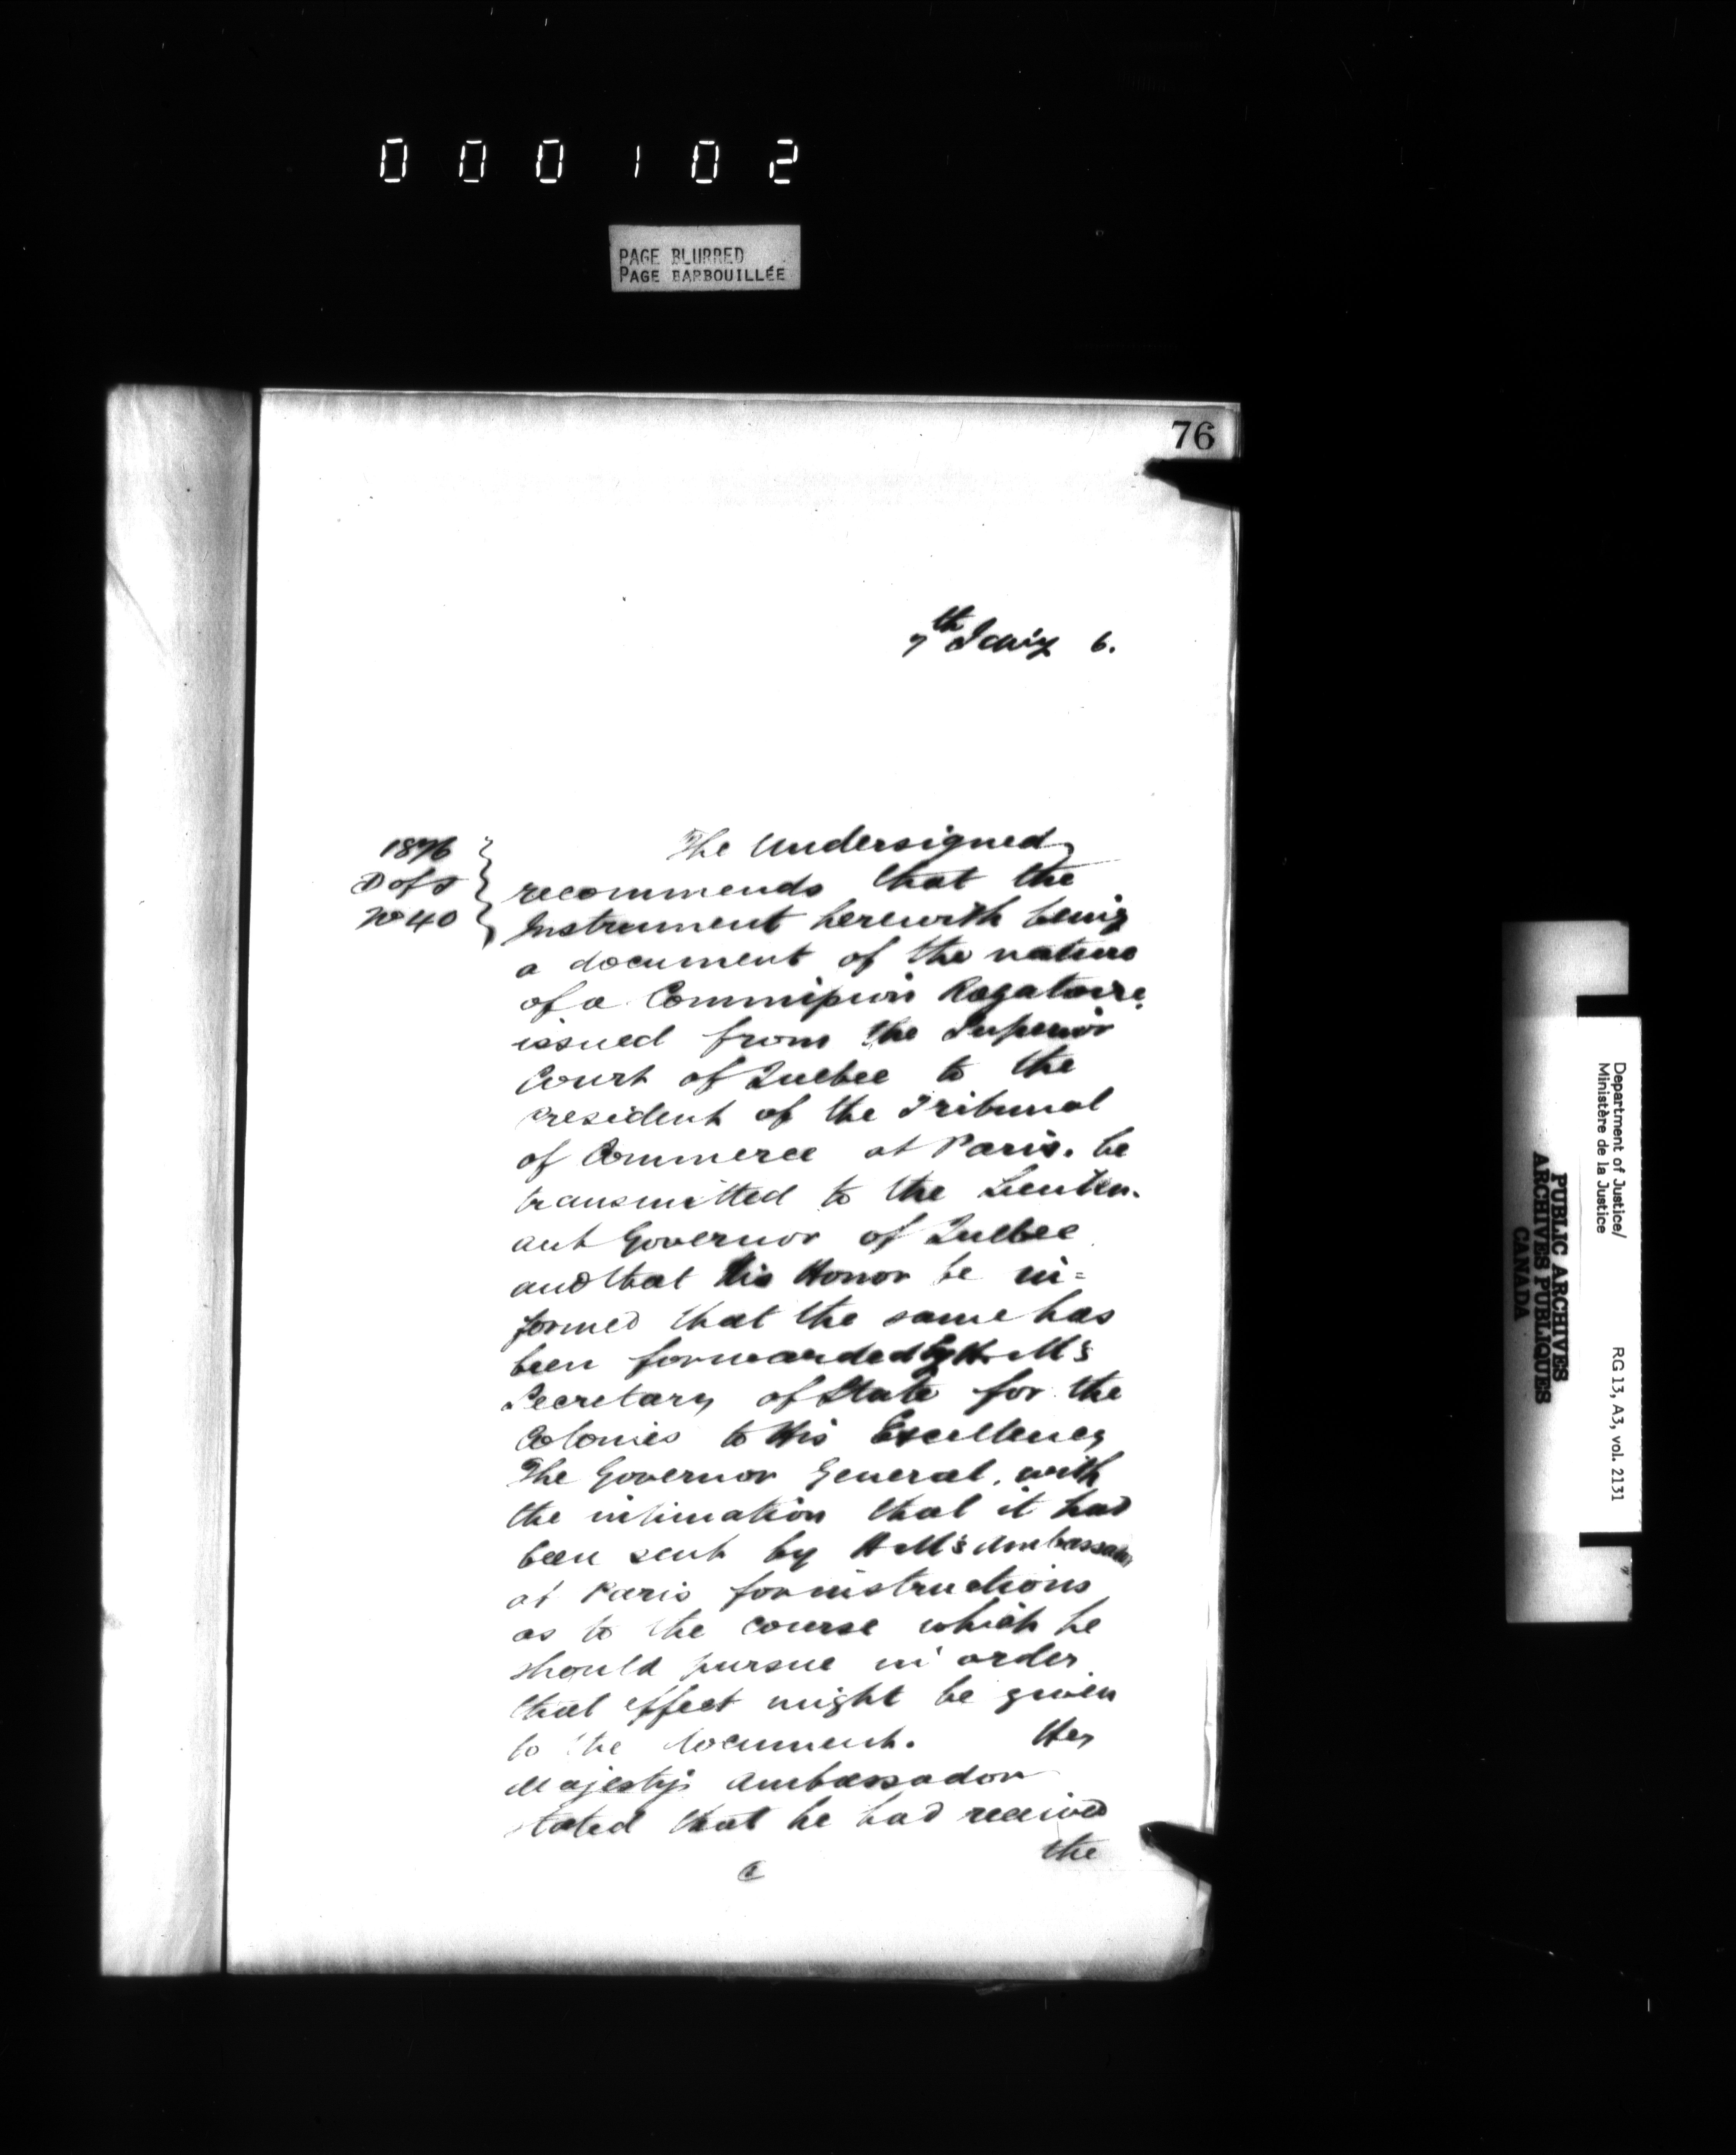 000102
PAGE BLURRED
PAGE BARBOUILLÉE
76
7th Jany 6.
1876
D of J
No 40
The Undersigned
recommends that the
Instrument herewith being
a document of the nature
of a Commission Rogatoire
issued from the Superior
Court of Quebec to the
President of the Tribunal
of Commerce at Paris. be
transmitted to the Lieuten-
ant Governor of Quebec
and that His Honor be in=
formed that the same has
been forwarded by H. M's
Secretary of State for the
Colonies to His Excellency
The Governor General, with
the intimation that it had
been sent by H M's Ambassador
at Paris for instructions
as to the course which he
should pursue in order
that effect might be given
to the document. Her
Majesty's Ambassador
stated that he had received
the
Department of Justice/
Ministère de la Justice
RG 13, A3, vol. 2131
PUBLIC ARCHIVES
ARCHIVES PUBLIQUES
CANADA